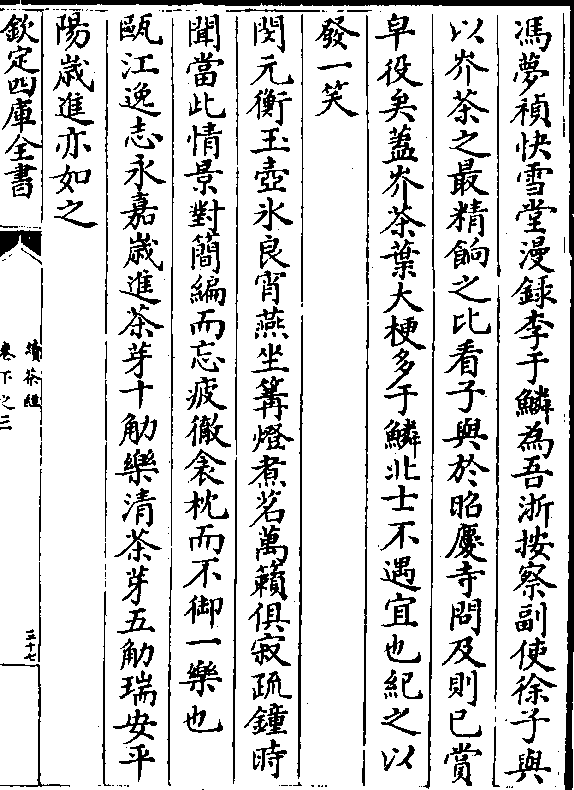 馮夢禎快雪堂漫録李于鱗為吾浙按察副使徐子與
以岕茶之最精餉之比看子與於昭慶寺問及則已賞
皁役矣蓋岕茶葉大梗多于鱗北士不遇宜也紀之以
發一笑
閔元衡玉壺氷良宵燕坐篝燈煮茗萬籟俱寂疏鐘時
聞當此情景對簡編而忘疲徹衾枕而不御一樂也
甌江逸志永嘉歲進茶芽十觔樂清茶芽五觔瑞安平
陽歲進亦如之
欽定四庫全書
續茶經
卷下之三
三十七